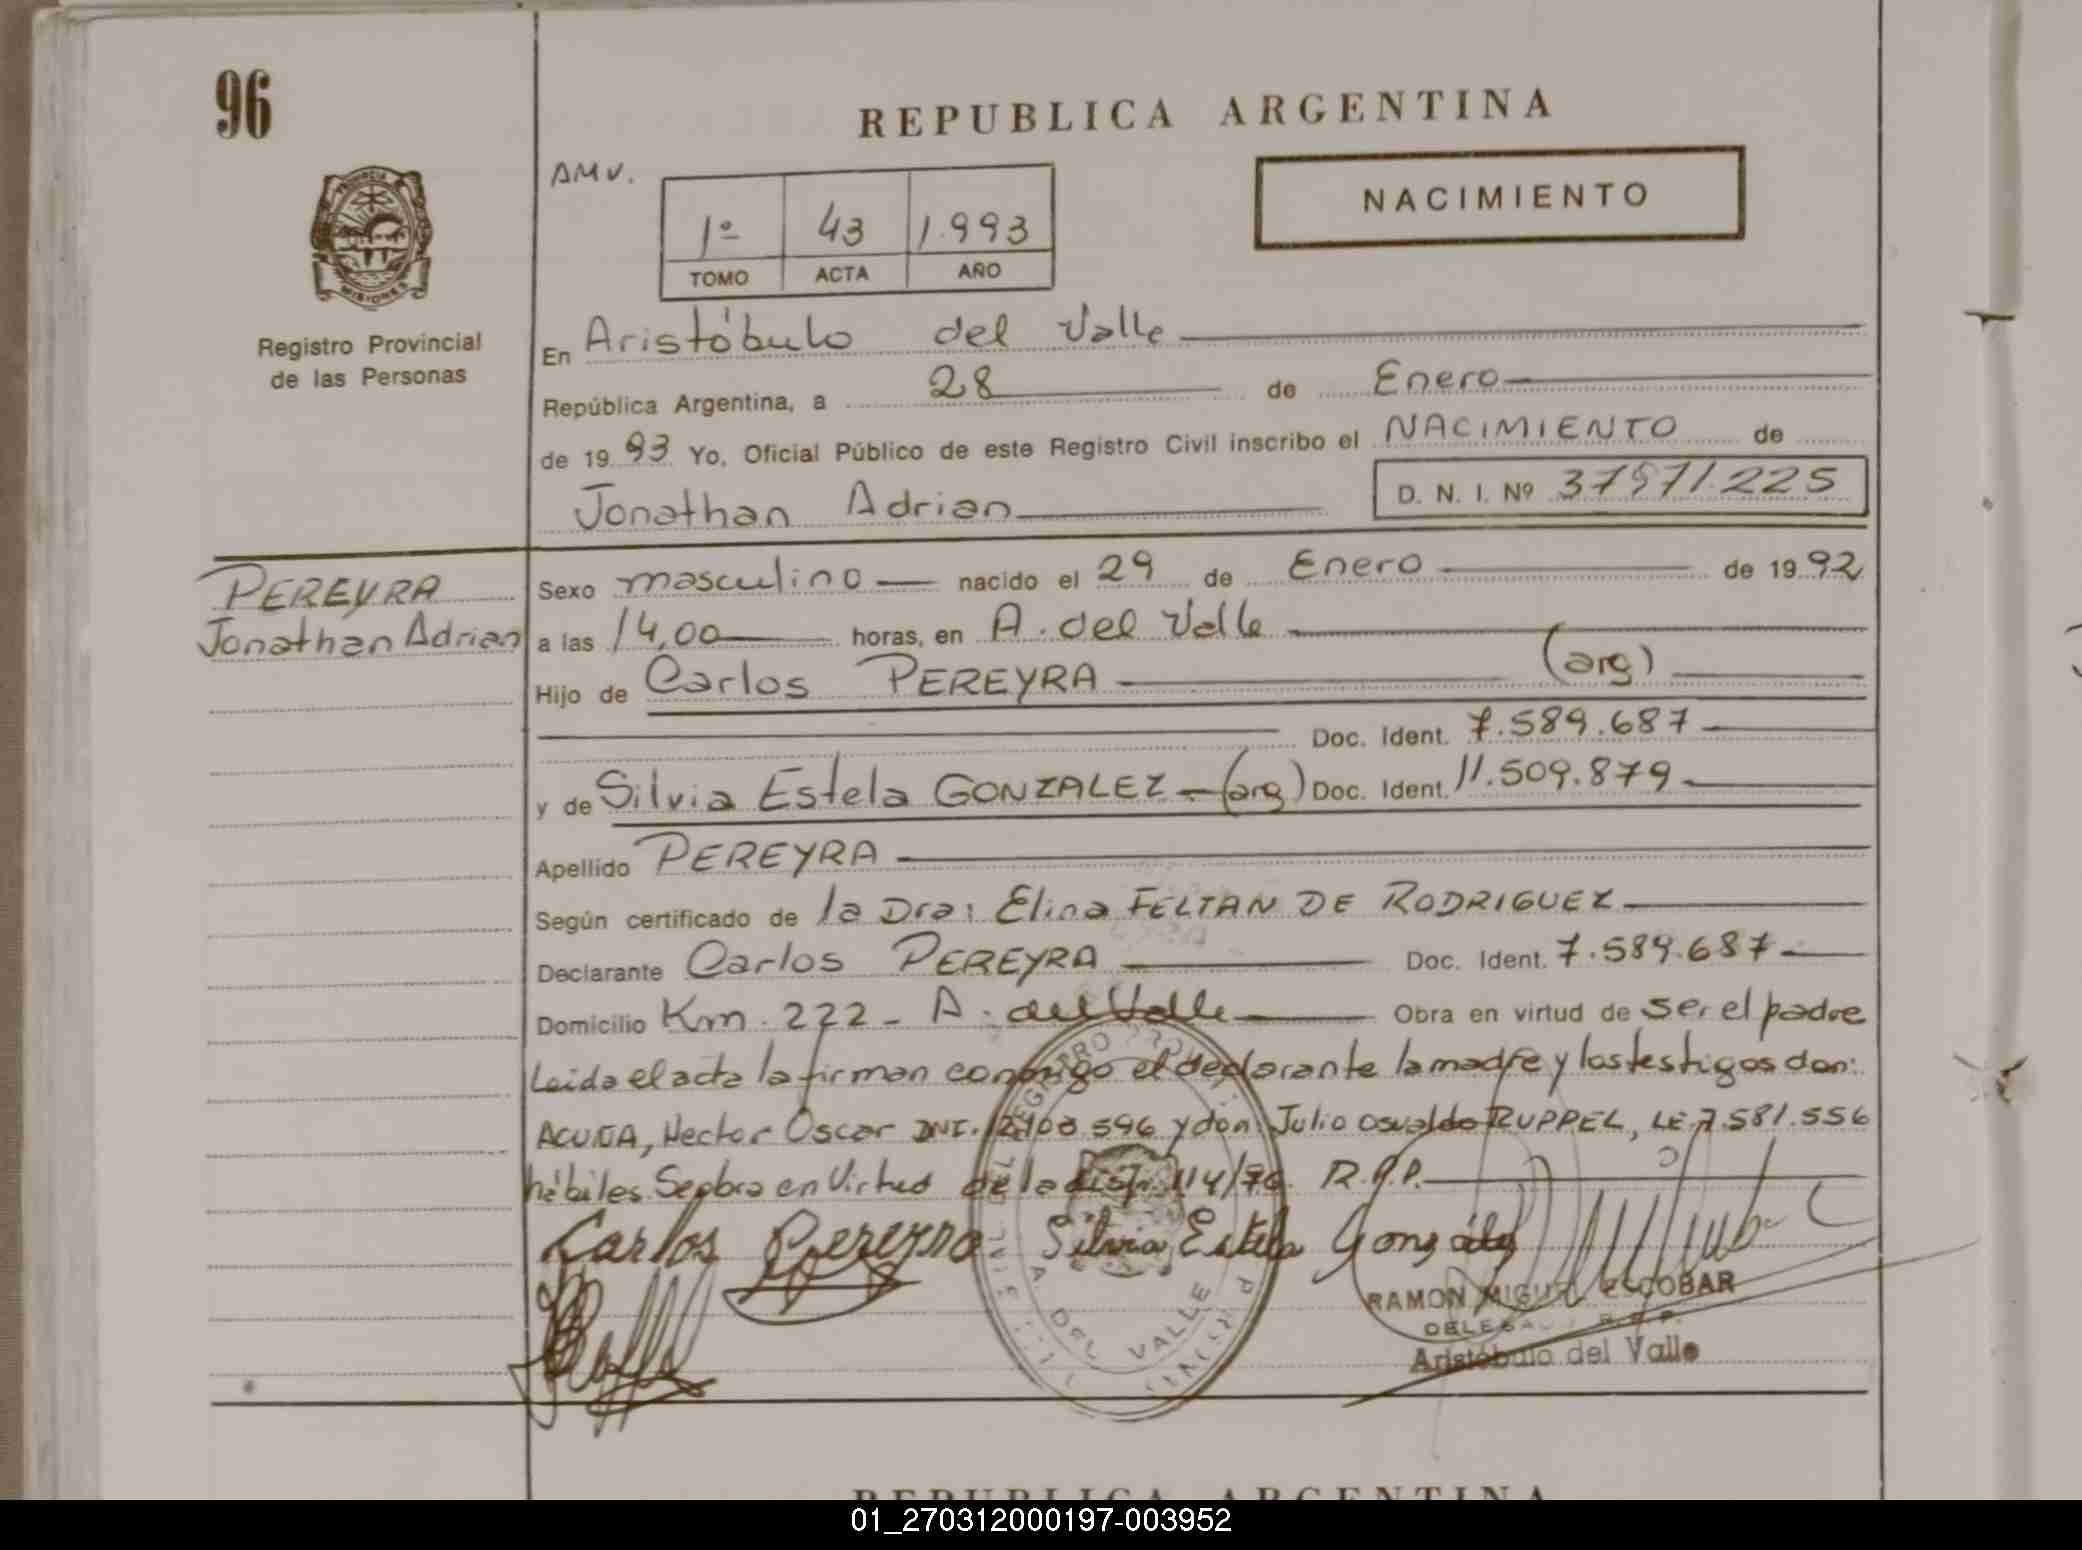 96
REPUBLICA ARGENTINA
AMV.
NACIMIENTO
1º 43 1.993
TOMO ACTA AÑO
PROVINCIA
MISIONES
Registro Provincial
de las Personas
En Aristóbulo del Valle
República Argentina, a 28 de Enero
de 1993 Yo, Oficial Público de este Registro Civil inscribo el NACIMIENTO de
Jonathan Adrian D. N. I. Nº 37971.225
PEREYRA
Jonathan Adrian
Sexo masculino nacido el 29 de Enero de 1992
a las 14,00 horas, en A. del Valle
Hijo de Carlos PEREYRA (arg)
Doc. Ident. 7.589.687
y de Silvia Estela GONZALEZ - (arg) Doc. Ident. 11.509.879
Apellido PEREYRA
Según certificado de la Dra: Elina FELTAN DE RODRIGUEZ
Declarante Carlos PEREYRA Doc. Ident. 7.589.687
Domicilio Km. 222 - A. del Valle Obra en virtud de ser el padre
Leida el acta la firman conmigo el declarante la madre y los testigos don:
ACUÑA, Hector Oscar DNI. 596 y don: Julio Osvaldo RUPPEL, LE. 7.581.556
hábiles. Se obra en Virtud de la disp. 114/70. R.P.P.
Carlos Pereyra Silvia Estela González
A DEL VALLE
RAMON MIGUEL ESCOBAR
DELEGADO R.P.P.
Aristóbulo del Valle
REPUBLICA ARGENTINA
01_270312000197-003952